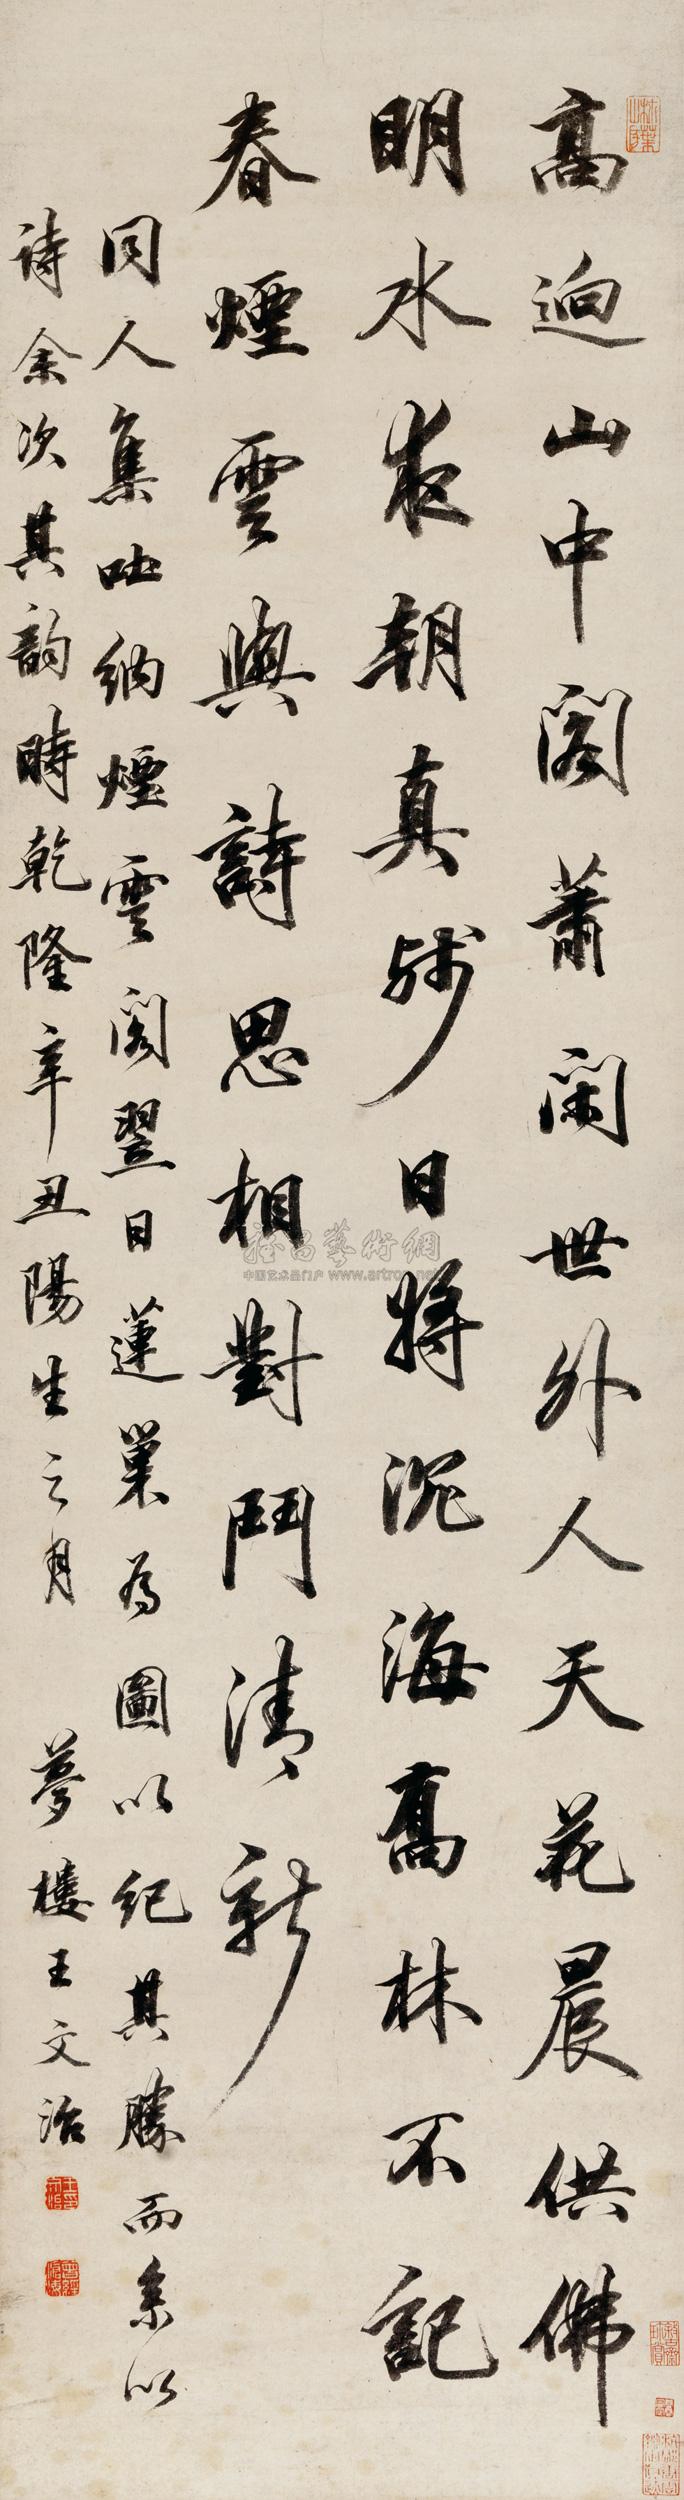 高迥山中閣蕭閑世外人天花晨供佛
明水夜朝真殘日將沉海高林不記
春煙雲與詩思相對鬥清新
同人集吐納煙雲閣翌日蓮巢為圖以紀其勝而系以
詩余次其韵時乾隆辛丑陽生之月 夢樓王文治
雅昌藝術網
中国艺术品门户 www.artron.net